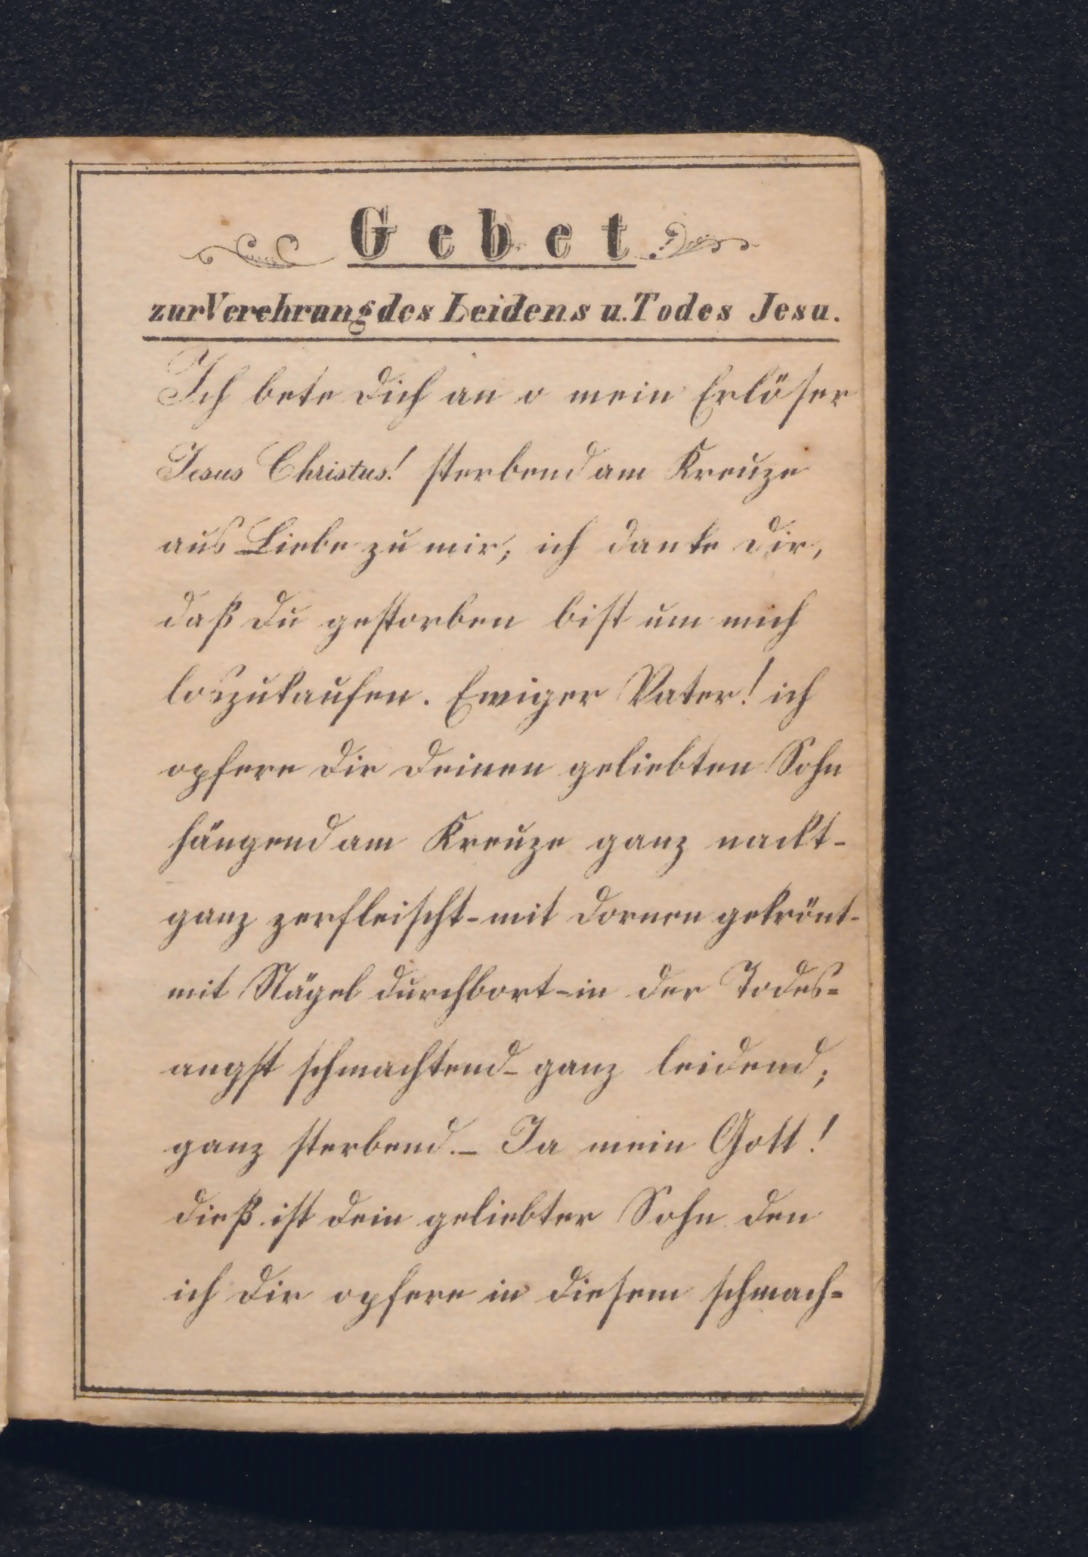 Gebet
zur Verehrung des Leidens u. Todes Jesu.
Ich bete dich an o mein Erlöser
Jesus Christus! sterbend am Kreuze
aus Liebe zu mir, ich danke dir,
daß du gestorben bist um mich
loszukaufen. Ewiger Vater! ich
opfere dir deinen geliebten Sohn
hängend am Kreuze ganz nackt-
ganz zerfleischt-mit Dornen gekrönt-
mit Nägel durchbort-in der Todes-
angst schmachtend-ganz leidend,
ganz sterbend.- Ja mein Gott!
dieß ist dein geliebter Sohn den
ich dir opfere in diesem schmach-